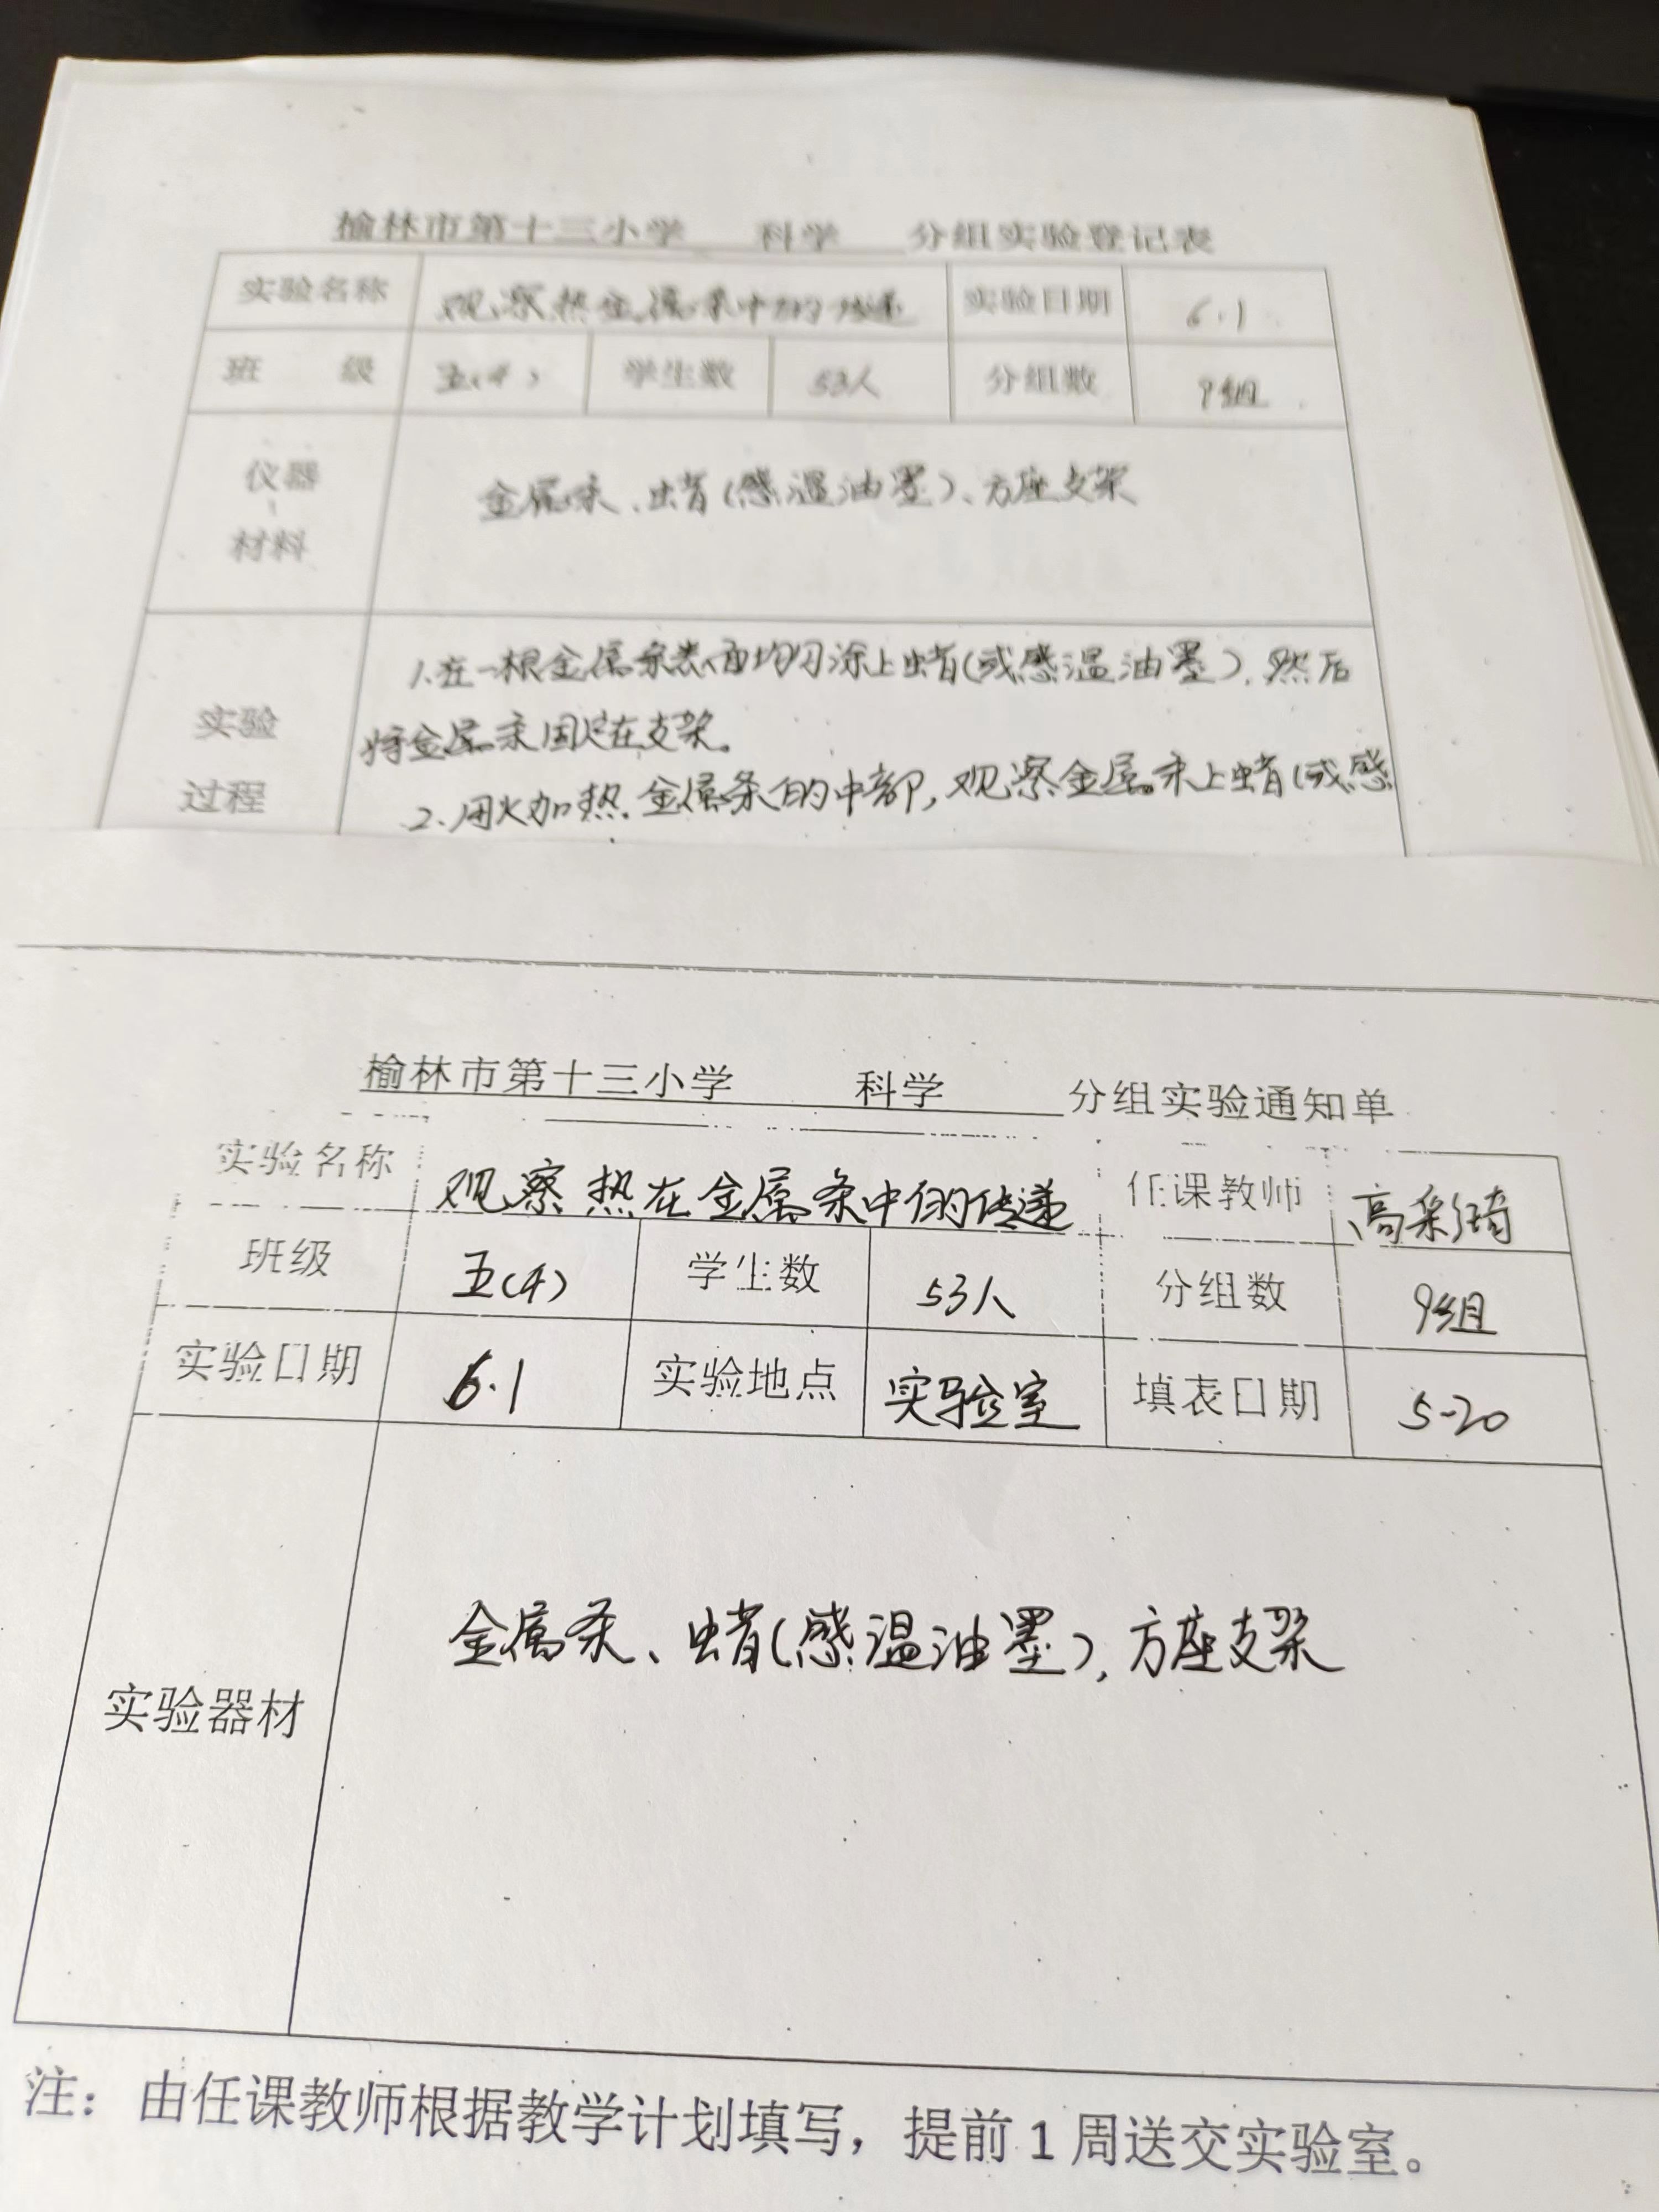 榆林市第十三小学 科学 分组实验登记表
实验名称 观察热金属条中的传递 实验日期 6.1
班 级 五(4) 学生数 53人 分组数 9组
仪器
材料
金属条、蜡(感温油墨)、方座支架
1.在一根金属条表面均匀涂上蜡(或感温油墨),然后
将金属条固定在支架。
2.用火加热金属条的中部,观察金属条上蜡(或感
实验
过程
榆林市第十三小学 科学 分组实验通知单
实验名称 观察热在金属条中的传递 任课教师 高彩琦
班级 五(4) 学生数 53人 分组数 9组
实验日期 6.1 实验地点 实验室 填表日期 5-20
实验器材 金属条、蜡(感温油墨),方座支架
注：由任课教师根据教学计划填写，提前1周送交实验室。